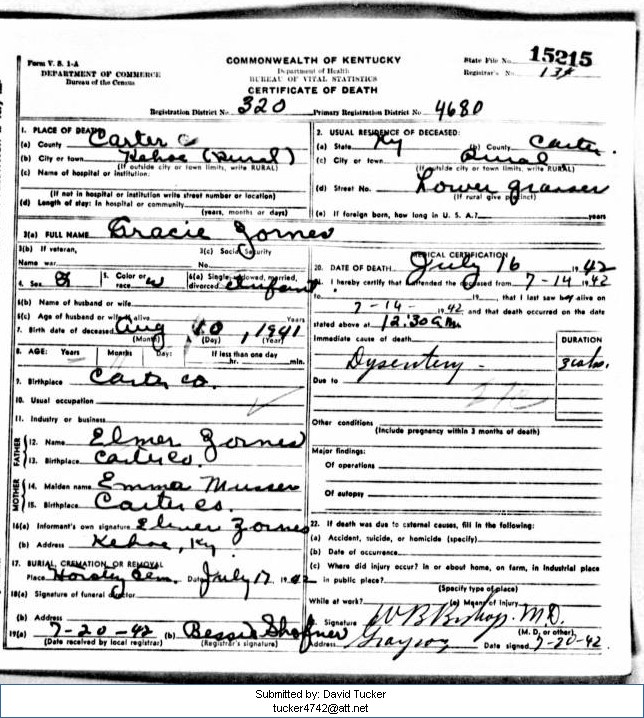 Form V. S. 1-A
DEPARTMENT OF COMMERCE
Bureau of the Census
COMMONWEALTH OF KENTUCKY
Department of Health
BUREAU OF VITAL STATISTICS
CERTIFICATE OF DEATH
State File No. 15215
Registrar's No.
Registration District No. 320 Primary Registration District No. 4680
1. PLACE OF DEATH
(a) County Carter Co
(b) City or town Kehoe (Rural)
(If outside city or town limits, write RURAL)
(c) Name of hospital or institution:
(If not in hospital or institution write street number or location)
(d) Length of stay: In hospital or community
(years, months or days)
2. USUAL RESIDENCE OF DECEASED:
(a) State Ky (b) County Carter
(c) City or town Rural
(If outside city or town limits, write RURAL)
(d) Street No. Lower Grassey
(If rural give precinct)
(e) If foreign born, how long in U. S. A.? years
3(a) FULL NAME Gracie Zornes
3(b) If veteran, 3(c) Social Security
Name war No.
4. Sex F 5. Color or race W 6(a) Single, widowed, married, divorced Infant
6(b) Name of husband or wife
6(c) Age of husband or wife if alive Years
7. Birth date of deceased Aug 10, 1941
(Month) (Day) (Year)
8. AGE: Years Months Days If less than one day
hr. min.
9. Birthplace Carter Co.
10. Usual occupation
11. Industry or business
FATHER
12. Name Elmer Zornes
13. Birthplace Carter Co.
MOTHER
14. Maiden name Emma Musser
15. Birthplace Carter Co.
16(a) Informant's own signature Elmer Zornes
(b) Address Kehoe, Ky
17. BURIAL, CREMATION OR REMOVAL
Place Cem. Date July 17 1942
18(a) Signature of funeral director
(b) Address
19(a) 7-20-42 (b) Bessie Shoffner
(Date received by local registrar) (Registrar's signature)
MEDICAL CERTIFICATION
20. DATE OF DEATH July 16 1942
I hereby certify that I attended the deceased from 7-14 1942
to 19 , that I last saw alive on
7-14- 1942 and that death occurred on the date
stated above at 12:30 A m.
Immediate cause of death DURATION
Dysentery -
Due to
Other conditions
(Include pregnancy within 3 months of death)
Major findings:
Of operations
Of autopsy
22. If death was due to external causes, fill in the following:
(a) Accident, suicide, or homicide (specify)
(b) Date of occurrence
(c) Where did injury occur? In or about home, on farm, in industrial place
in public place?
(Specify type of place)
While at work? (e) Means of injury
Signature W B Bishop. M.D.
(M. D. or other)
Address Grayson Date signed 7-20-42.
Submitted by: David Tucker
tucker4742@att.net